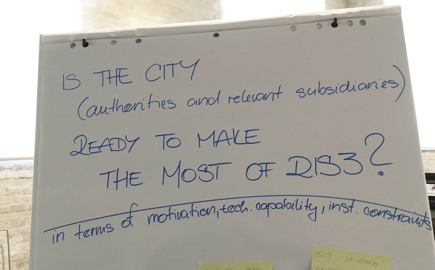 IS THE CITY
(authorities and relevant subsidiaries)
READY TO MAKE
THE MOST OF RIS3?
in terms of motivation, tech. capability, inst. constraints